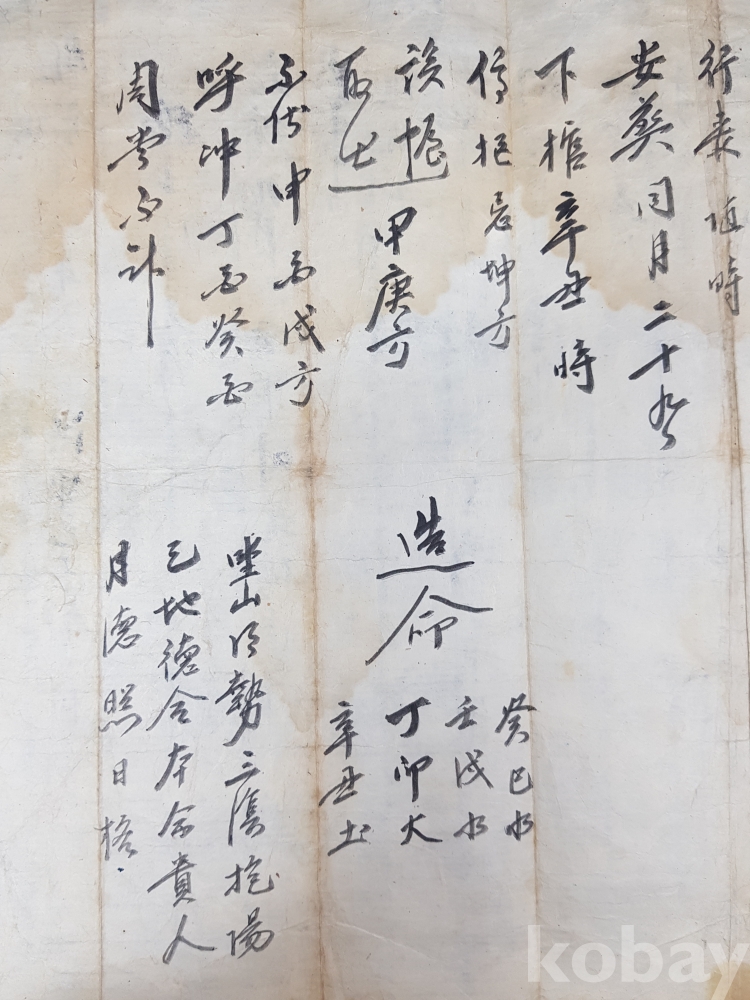 行喪隨時
安葬同月二十九日
下棺辛丑時
停柩忌坤方
設幄
取土
甲庚方
不伏申酉戌方
呼冲丁酉癸酉
周堂不計
造命
癸巳水
壬戌水
丁卯火
辛丑土
坐山得勢三陰抱陽
地德合本命貴人
月德照日格
kobay